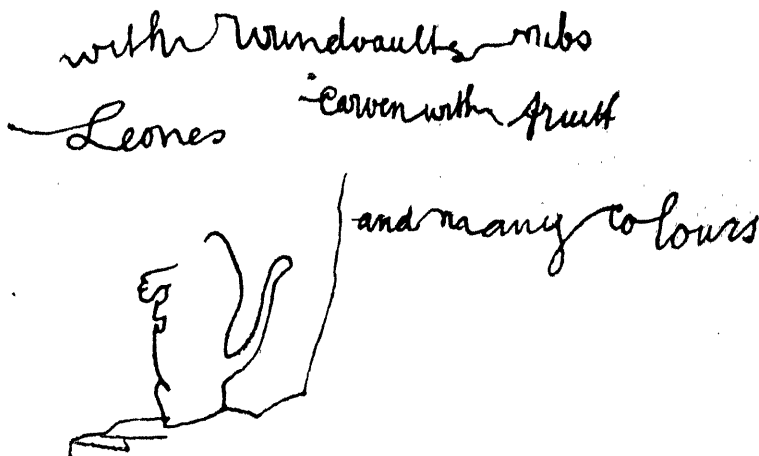 with Wundvaults ribs
Leones
carven with fruitt
and many colours